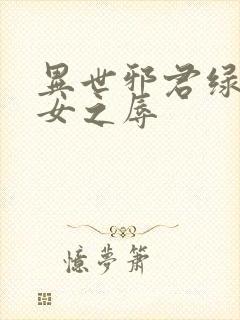 異世邪君绿
女之辱
憶夢簫